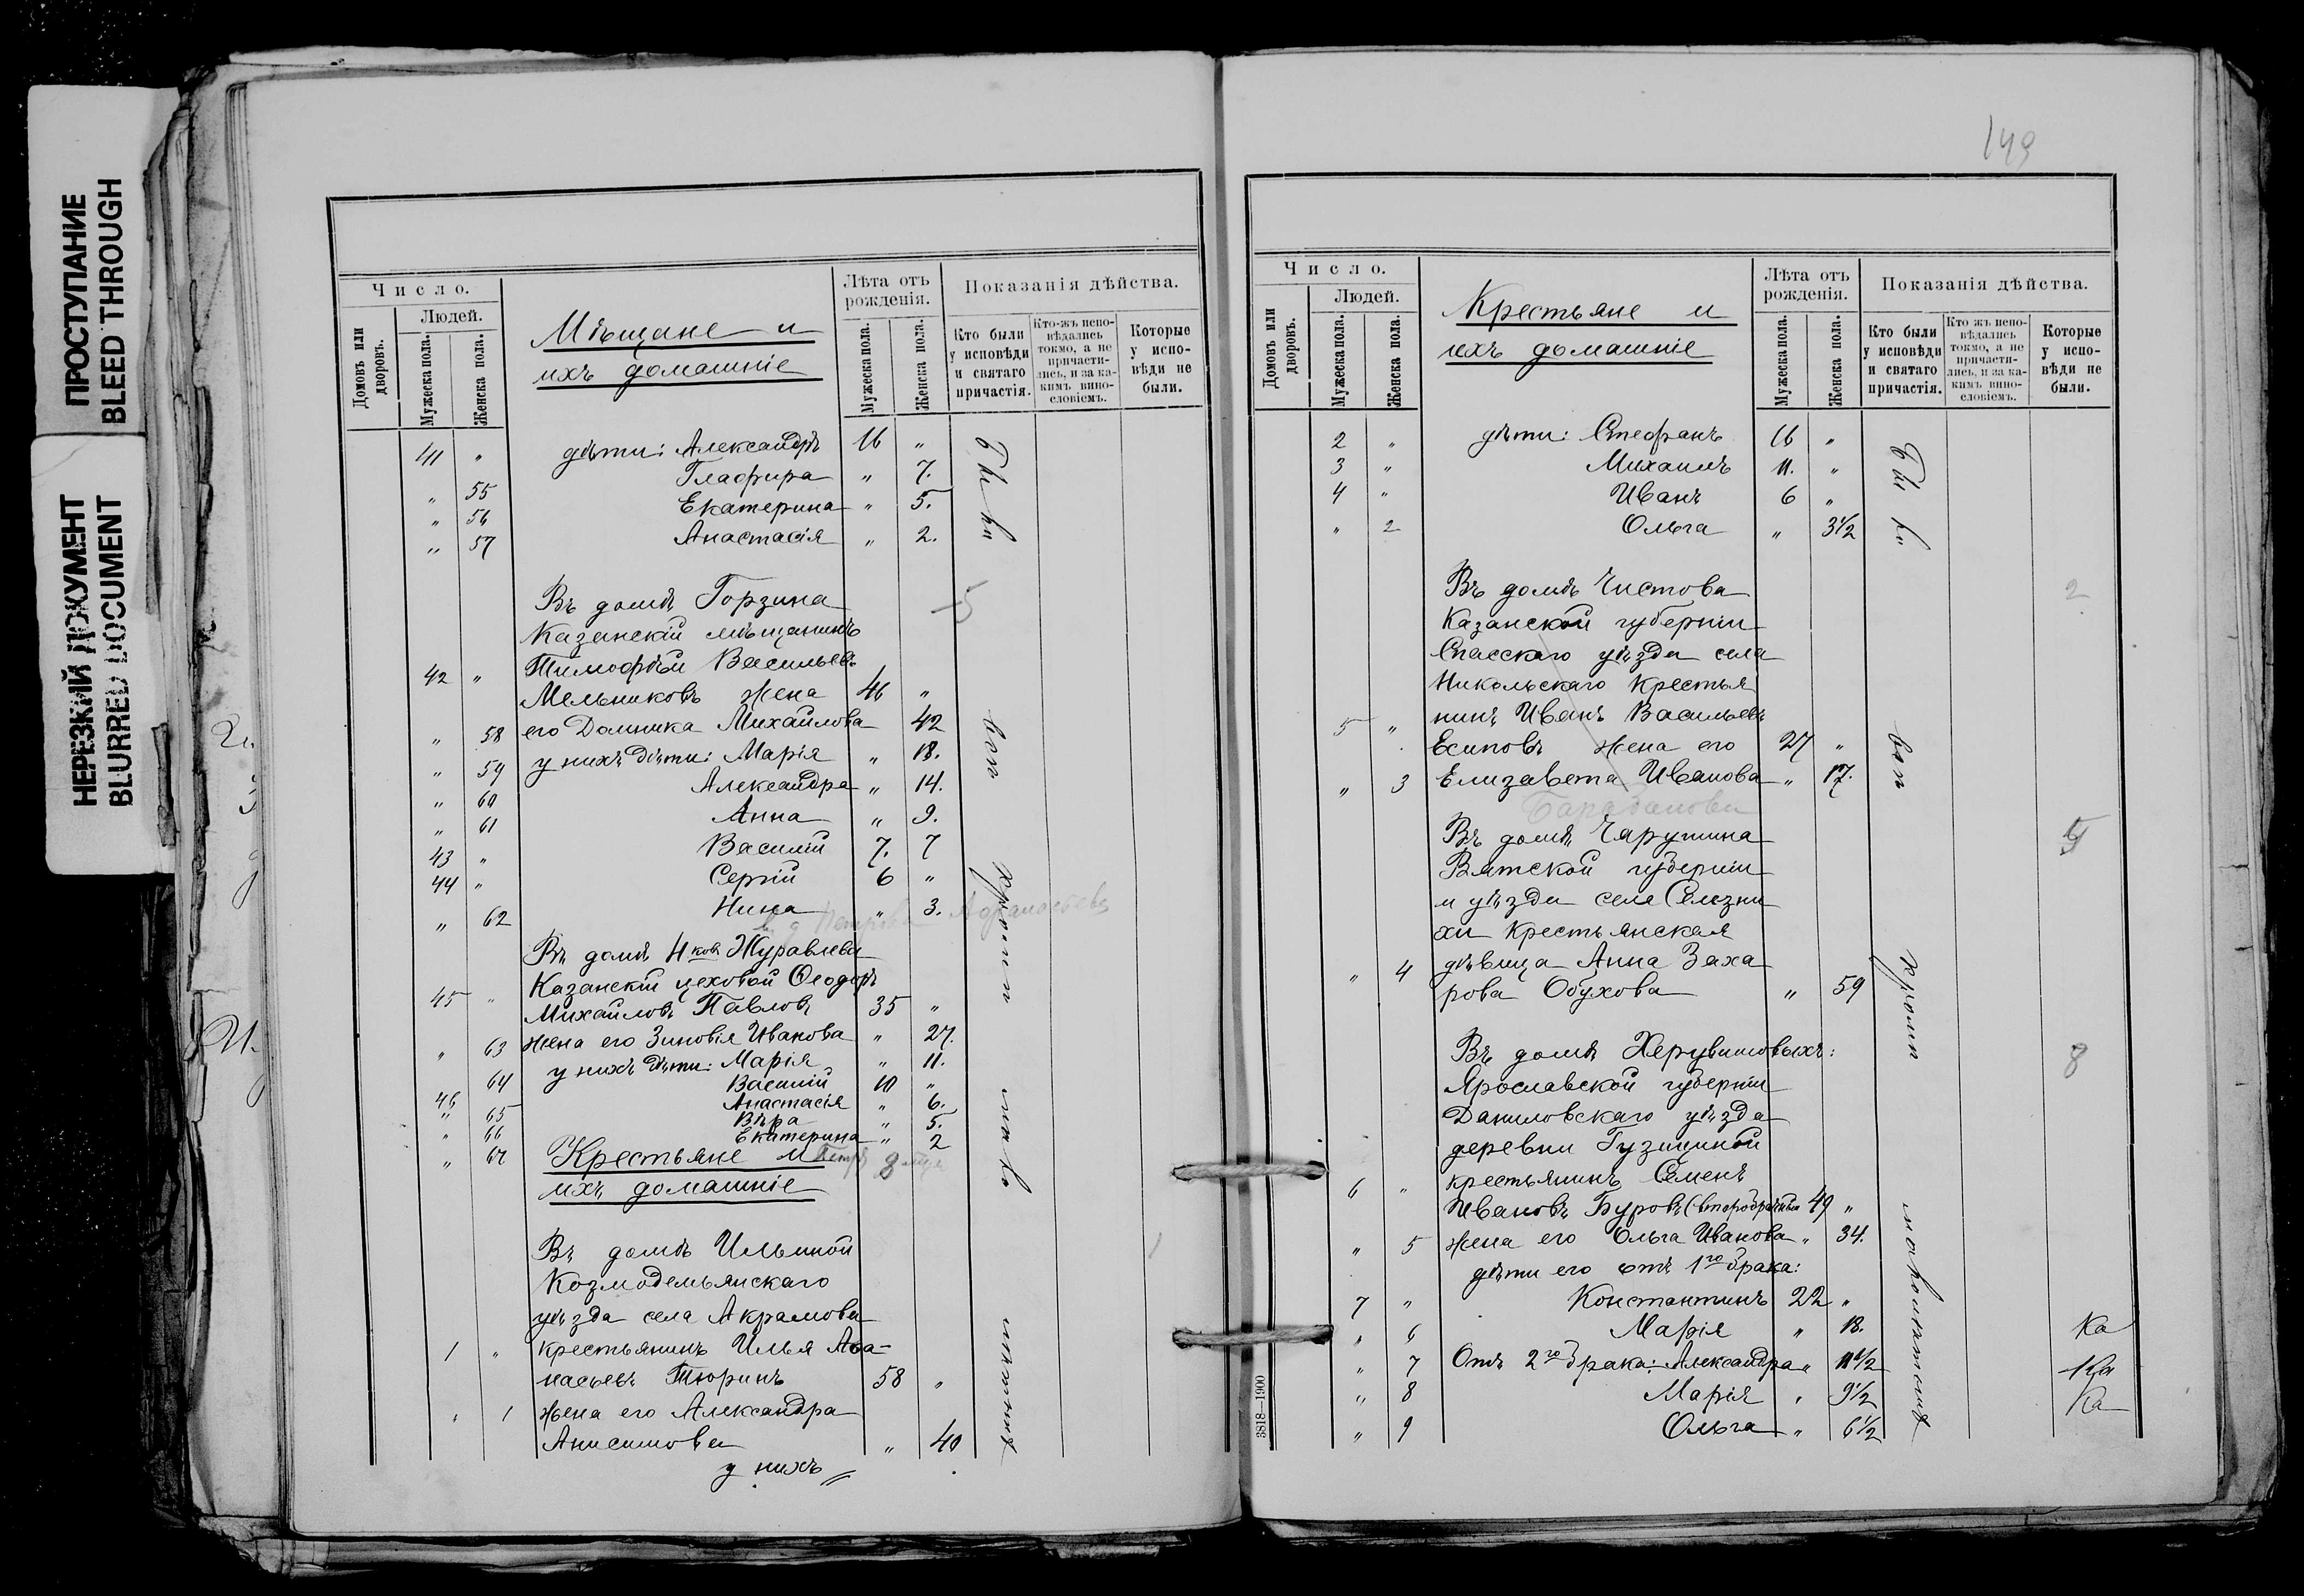 ПРОСТУПАНИЕ
BLEED THROUGH
НЕРЕЗКИЙ ДОКУМЕНТ
BLURRED DOCUMENT
Число.
Людей.
Домовъ или дворовъ.
Мужеска пола.
Женска пола.
Мѣщане и
ихъ домашніе
Лѣта отъ рожденія.
Мужеска пола.
Женска пола.
Показанія дѣйства.
Кто были у исповѣди и святаго причастія.
Кто-жъ испо-вѣдались токмо, а не причасти-лись, и за ка-кимъ вино-словіемъ.
Которые у испо-вѣди не были.
41 " дѣти: Александръ 16 "
" 55 Глафира " 7.
" 56 Екатерина " 5.
" 57 Анастасія " 2.
Были
5
Въ домѣ Горзина
Казанскій мѣщанинъ
42 " Тимофѣй Васильевъ
Мельниковъ жена 46 "
" 58 его Домника Михайлова 42
" 59 у нихъ дѣти: Марія " 18.
" 60 Александра " 14.
" 61 Анна " 9.
43 " Василій 7. 7
44 " Сергій 6 "
" 62 Нина " 3.
Въ домѣ Н-ковъ Журавлева
Казанскій цеховой Ѳеодоръ
45 " Михайловъ Павловъ 35 "
" 63 жена его Зиновія Иванова " 27.
64 у нихъ дѣти: Марія " 11.
46 " Василій 10 "
65 Анастасія " 6.
" 66 Вѣра " 5.
" 67 Екатерина " 2
Крестьяне и
ихъ домашніе
Въ домѣ Ильиной
1
Козмодемьянскаго
уѣзда села Акрамова
1 " крестьянинъ Илья Аѳа-
насьевъ Тюринъ 58 "
" 1 жена его Александра
Анисимова " 40
у нихъ
вси
кромѣ
149
Число.
Людей.
Домовъ или дворовъ.
Мужеска пола.
Женска пола.
Крестьяне и
ихъ домашніе
Лѣта отъ рожденія.
Мужеска пола.
Женска пола.
Показанія дѣйства.
Кто были у исповѣди и святаго причастія.
Кто жъ испо-вѣдались токмо, а не причасти-лись, и за ка-кимъ вино-словіемъ.
Которые у испо-вѣди не были.
2 " дѣти: Стефанъ 16 "
3 " Михаилъ 11. "
4 " Иванъ 6 "
" 2 Ольга " 3½
Были
2
Въ домѣ Чистова
Казанской губерніи
Спасскаго уѣзда села
Никольскаго крестья
5 " нинъ Иванъ Васильевъ
Есиповъ жена его 27 "
" 3 Елизавета Иванова " 17.
Въ домѣ Чарушина
5
Вятской губерніи
и уѣзда села Селезни
хи крестьянская
" 4 дѣвица Анна Заха
рова Обухова " 59
Въ домѣ Херувимовыхъ:
8
Ярославской губерніи
Даниловскаго уѣзда
деревни Гузициной
6 " крестьянинъ Семенъ
Ивановъ Буровъ (второбрачный 49 "
" 5 жена его Ольга Иванова " 34.
дѣти его отъ 1го брака:
7 " Константинъ 22 "
" 6 Марія " 18. Ка
" 7 Отъ 2го брака: Александра " 11½ Ка
" 8 Марія " 9½ Ка
" 9 Ольга " 6½
вси
кромѣ
малолѣтнихъ
3818—1900